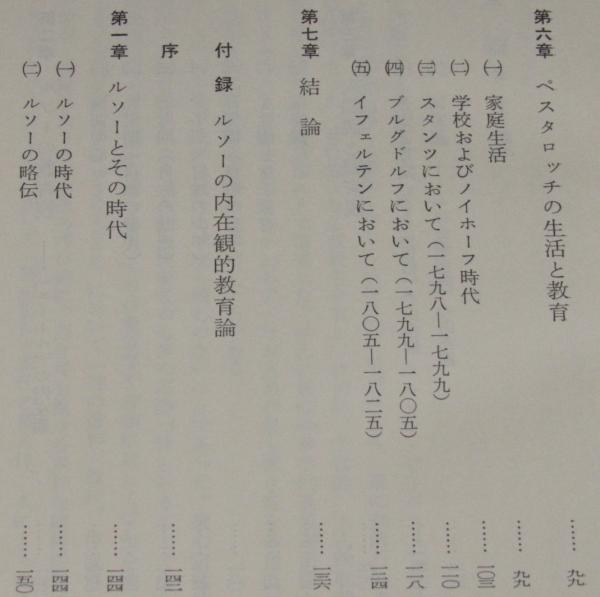 第六章 ペスタロッチの生活と教育 ……九九
㈠ 家庭生活 ……九九
㈡ 学校およびノイホーフ時代 ……一〇三
㈢ スタンツにおいて（一七九八―一七九九） ……一一〇
㈣ ブルグドルフにおいて（一七九九―一八〇五） ……一一八
㈤ イフェルテンにおいて（一八〇五―一八二五） ……一二四
第七章 結論 ……一三六
付録 ルソーの内在観的教育論
序 ……一四二
第一章 ルソーとその時代 ……一四四
㈠ ルソーの時代 ……一四四
㈡ ルソーの略伝 ……一五〇